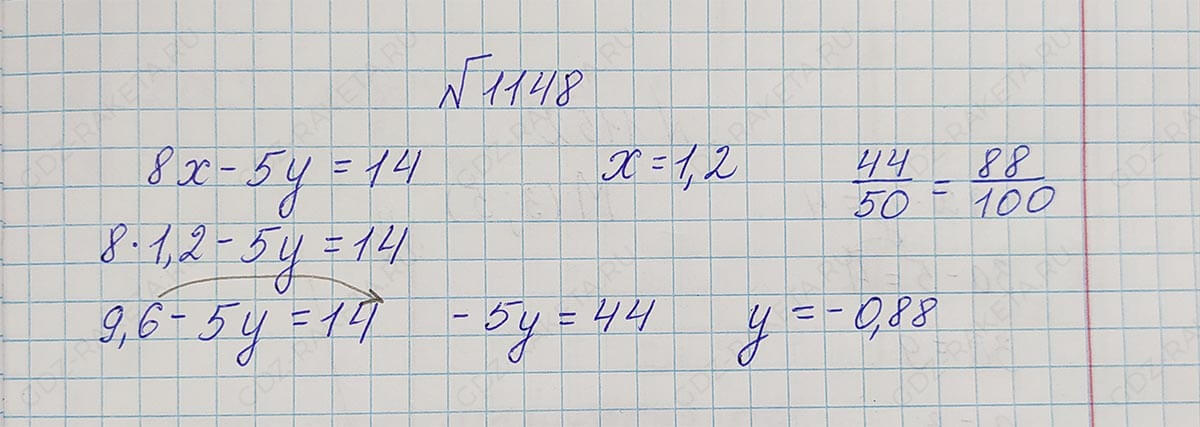 №1148
8x - 5y = 14 x = 1,2 44/50 = 88/100
8 · 1,2 - 5y = 14
9,6 - 5y = 14 - 5y = 44 y = - 0,88
GDZ-RAKETA.RU